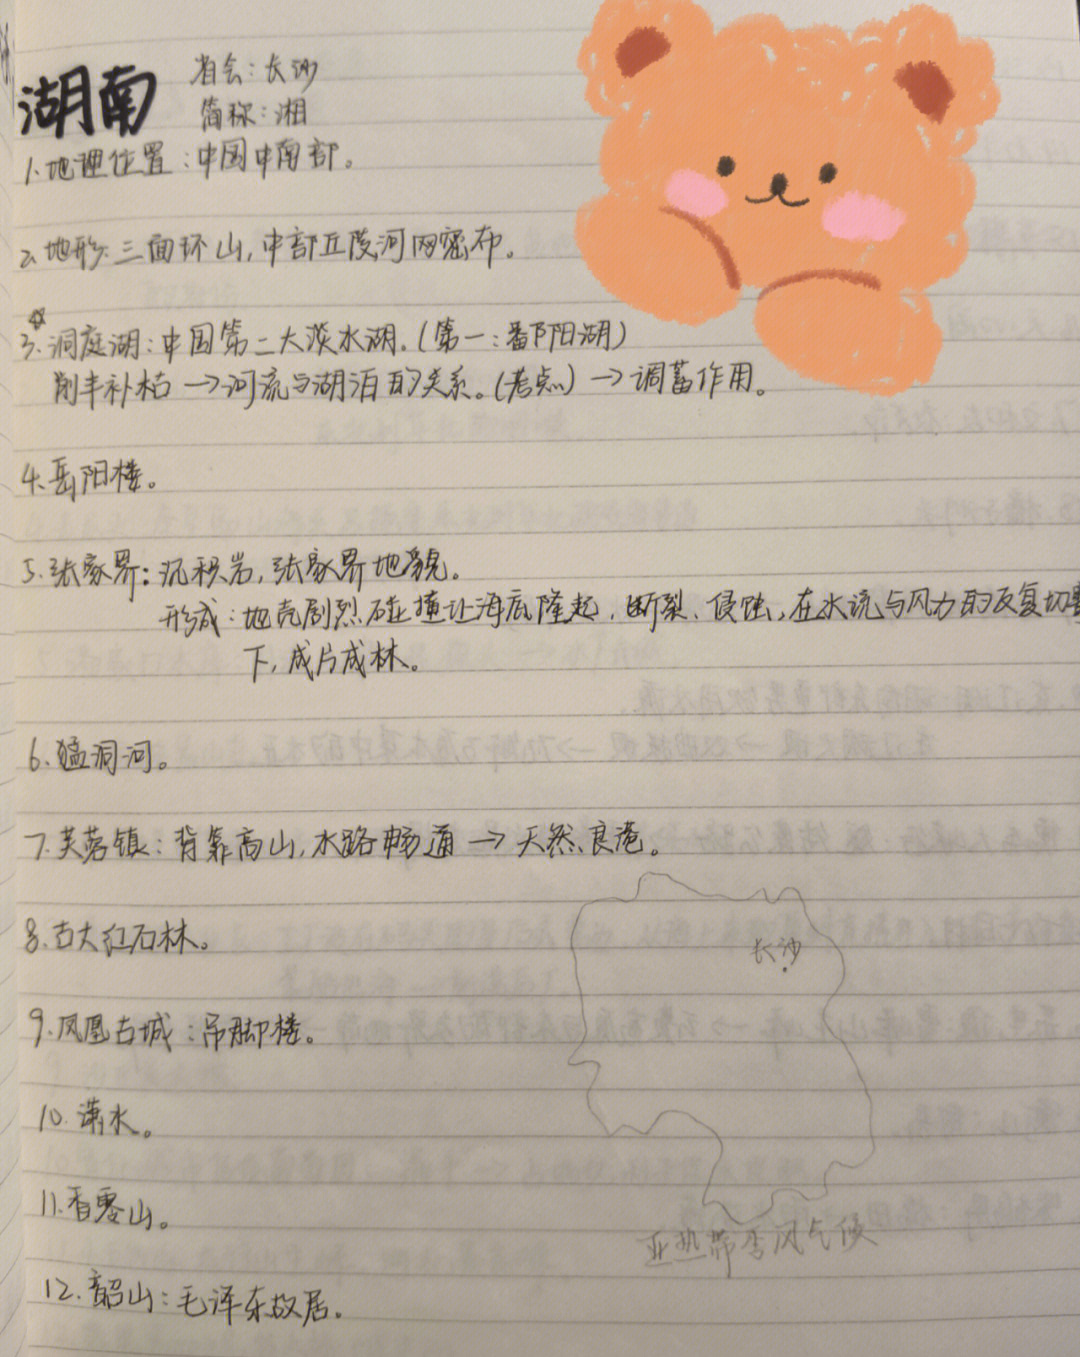 湖南
省会：长沙
简称：湘
1.地理位置：中国中南部。
2.地形：三面环山，中部丘陵河网密布。
☆
3.洞庭湖：中国第二大淡水湖.（第一：鄱阳湖）
削丰补枯→河流与湖泊的关系.（考点）→调蓄作用。
4.岳阳楼。
5.张家界：沉积岩，张家界地貌。
形成：地壳剧烈碰撞让海底隆起，断裂、侵蚀，在水流与风力的反复切割
下，成片成林。
6.猛洞河。
7.芙蓉镇：背靠高山，水路畅通→天然良港。
8.古大红石林。
长沙
9.凤凰古城：吊脚楼。
10.潇水。
11.香零山。
亚热带季风气候
12.韶山：毛泽东故居。